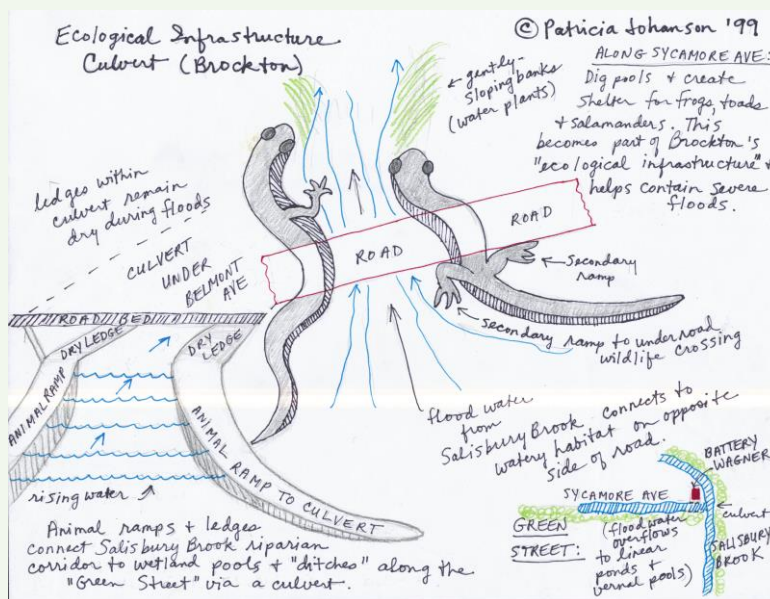 Ecological Infrastructure
Culvert (Brockton)
© Patricia Johanson '99
ALONG SYCAMORE AVE:
Dig pools & create
shelter for frogs, toads
& salamanders. This
becomes part of Brockton's
"ecological infrastructure" &
helps contain severe
floods.
← gently-
sloping banks
(water plants)
ledges within
culvert remain
dry during floods
CULVERT
UNDER
BELMONT
AVE
ROAD
ROAD
← secondary
ramp
secondary ramp to underroad
wildlife crossing
ROAD BED
DRY LEDGE
DRY LEDGE
ANIMAL RAMP
ANIMAL RAMP TO CULVERT
rising water →
flood water
from
Salisbury Brook connects to
watery habitat on opposite
side of road.
Animal ramps & ledges
connect Salisbury Brook riparian
corridor to wetland pools & "ditches" along the
"Green Street" via a culvert.
BATTERY
WAGNER
SYCAMORE AVE
← culvert
GREEN
STREET:
(flood water
overflows
to linear
ponds &
vernal pools)
SALISBURY
BROOK